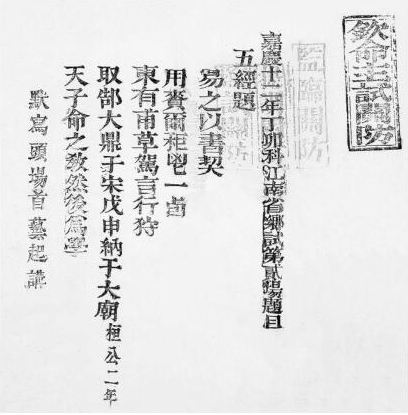 欽命主試關防
監臨關防
嘉慶十二年丁卯科江南省鄉試第貳場題目
五經題
易之以書契
用賚爾秬鬯一卣
東有甫草駕言行狩
取郜大鼎于宋戊申納于大廟桓公二年
天子命之敎然後爲學
默寫頭場首藝起講